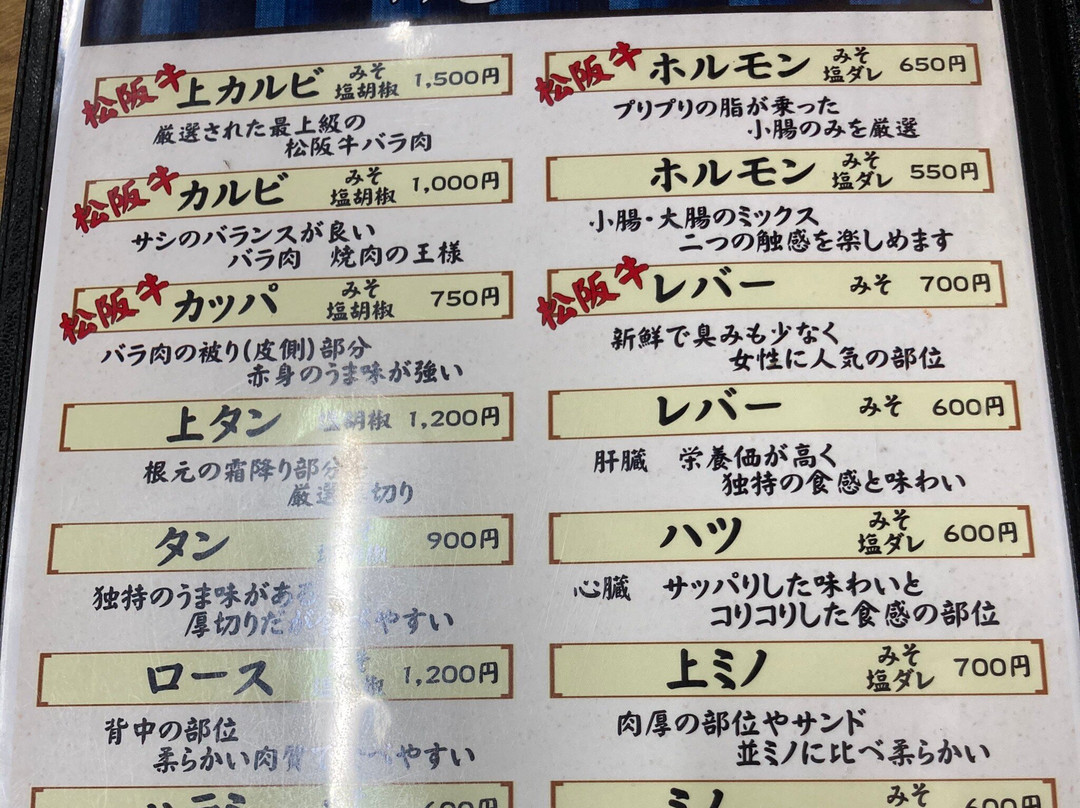 松阪牛 上カルビ みそ 塩胡椒 1,500円
厳選された最上級の
松阪牛バラ肉
松阪牛 カルビ みそ 塩胡椒 1,000円
サシのバランスが良い
バラ肉 焼肉の王様
松阪牛 カッパ みそ 塩胡椒 750円
バラ肉の被り(皮側)部分
赤身のうま味が強い
上タン 塩胡椒 1,200円
根元の霜降り部分
厳選 切り
タン 900円
独特のうま味がある
厚切りだ やすい
ロース 1,200円
背中の部位
柔らかい肉質で やすい
600円
松阪牛 ホルモン みそ 塩ダレ 650円
プリプリの脂が乗った
小腸のみを厳選
ホルモン みそ 塩ダレ 550円
小腸・大腸のミックス
二つの触感を楽しめます
松阪牛 レバー みそ 700円
新鮮で臭みも少なく
女性に人気の部位
レバー みそ 600円
肝臓 栄養価が高く
独特の食感と味わい
ハツ みそ 塩ダレ 600円
心臓 サッパリした味わいと
コリコリした食感の部位
上ミノ みそ 塩ダレ 700円
肉厚の部位やサンド
並ミノに比べ柔らかい
ミノ みそ 600円